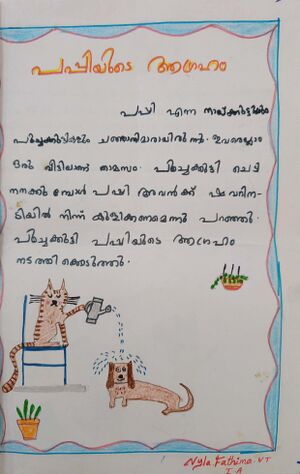 പപ്പിയുടെ ആഗ്രഹം
പപ്പി എന്ന നായ്ക്കുട്ടിക്കും
പൂച്ചക്കുട്ടികളും ചങ്ങാതിമാരായിരുന്നു. ഇവരെല്ലാം
ഒരു വീട്ടിലാണ് താമസം. പൂച്ചക്കുട്ടി ചെടി
നനക്കുമ്പോൾ പപ്പി അവൻക്ക് ഷവറിന-
ടിയിൽ നിന്ന് കുളിക്കണമെന്ന് പറഞ്ഞു.
പൂച്ചക്കുട്ടി പപ്പിയുടെ ആഗ്രഹം
നടത്തി കൊടുത്തു.
Nyla Fathima. VT
I A